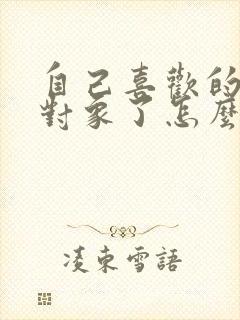 自己喜歡的
對象了怎麼
凌束雪語